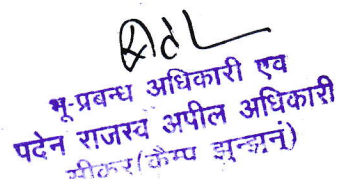 भू-प्रबन्ध अधिकारी एव
पदेन राजस्व अपील अधिकारी
सीकर(कैम्प झुन्झनू)